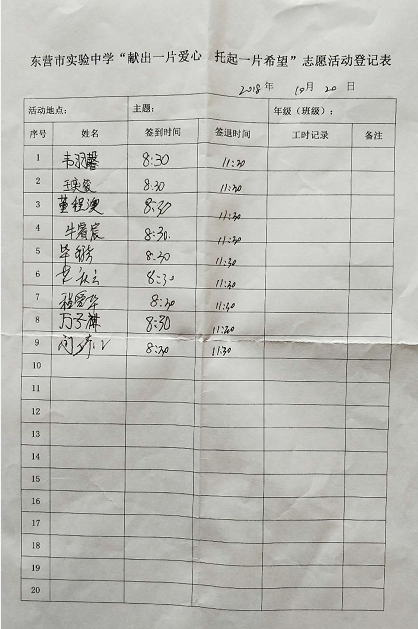 东营市实验中学“献出一片爱心 托起一片希望”志愿活动登记表
2018年 10月 20日
活动地点： 主题： 年级（班级）：
序号 姓名 签到时间 签退时间 工时记录 备注
1 韦羽馨 8:30 11:30
2 8:30 11:30
3 董程澳 8:30 11:30
4 牛宸 8:30. 11:30
5 毕 8:30 11:30
6 8:30 11:30
7 程爱华 8:30 11:30
8 万子祺 8:30 11:30
9 8:30 11:30
10
11
12
13
14
15
16
17
18
19
20